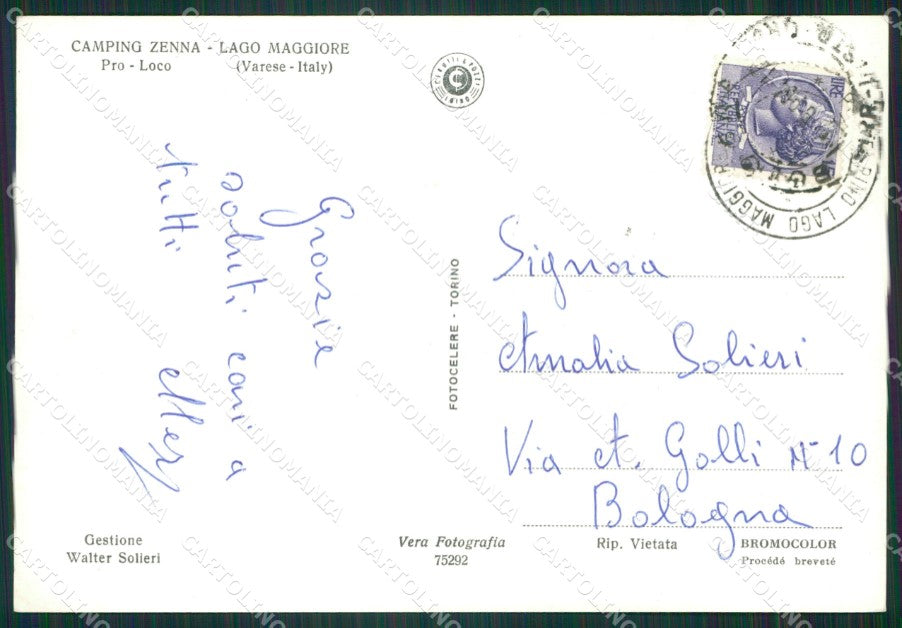 CAMPING ZENNA - LAGO MAGGIORE
Pro - Loco (Varese - Italy)
Grazie
saluti cari a
tutti
FOTOCELERE - TORINO
LIRE
LAGO MAGGIORE
Signora
Amalia Solieri
Via A. Golli N° 10
Bologna
Gestione
Walter Solieri
Vera Fotografia
75292
Rip. Vietata
BROMOCOLOR
Procédé breveté
CARTOLINOMANIA